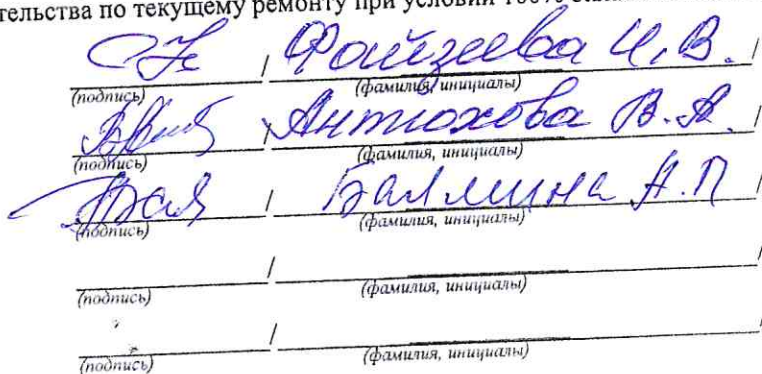 тельства по текущему ремонту при условии 100%
/ Файзеева И.В. /
(подпись) (фамилия, инициалы)
/ Антюхова В.А. /
(подпись) (фамилия, инициалы)
/ Баллина А.П /
(подпись) (фамилия, инициалы)
/ /
(подпись) (фамилия, инициалы)
/ /
(подпись) (фамилия, инициалы)